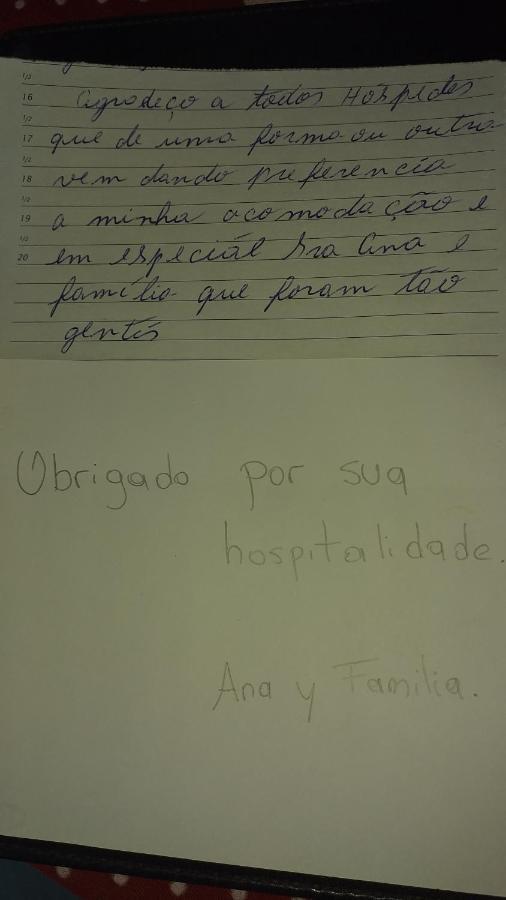 1/2
16 Agradeço a todos Hóspedes
1/2
17 que de uma forma ou outra
1/2
18 vem dando preferencia
1/2
19 a minha acomodação e
1/2
20 em especiál Sra Ana e
família que foram tão
gentis
Obrigado por sua
hospitalidade.
Ana y Familia.